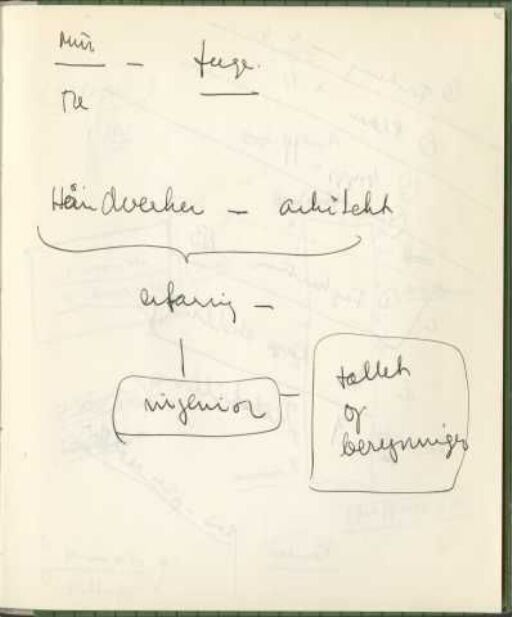 mur - fuge.
Håndverker - arkitekt
erfaring -
ingeniør
tallet
og
beregninger